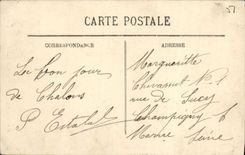 57
CARTE POSTALE
CORRESPONDANCE
ADRESSE
Le bon jour
de Chalons
P Estalal
Margueritte
Chevassut
rue de Sucy
Champigny
Marne Seine